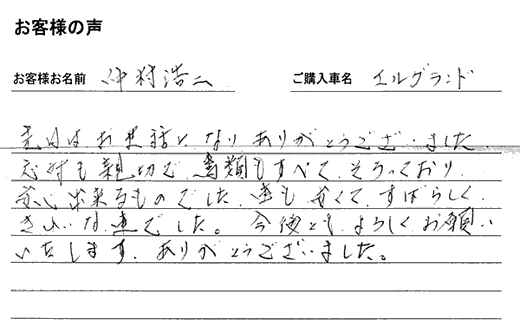 お客様の声
お客様お名前 仲村浩二 ご購入車名 エルグランド
先日はお世話になりありがとうございました
応対も親切で書類もすべてそろっており
安心出来るものでした。車も安くて、すばらしく
きれいな車でした。今後ともよろしくお願い
いたします。ありがとうございました。